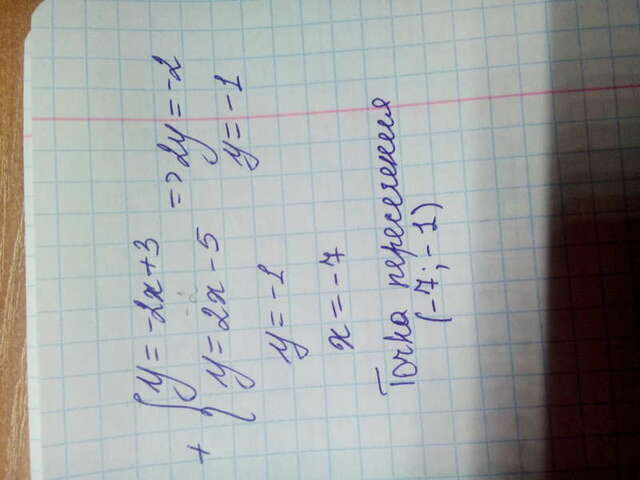 + { y = -2x + 3
y = 2x - 5 => 2y = -2
y = -1
y = -1
x = -7
Точка пересечения
(-7; -1)